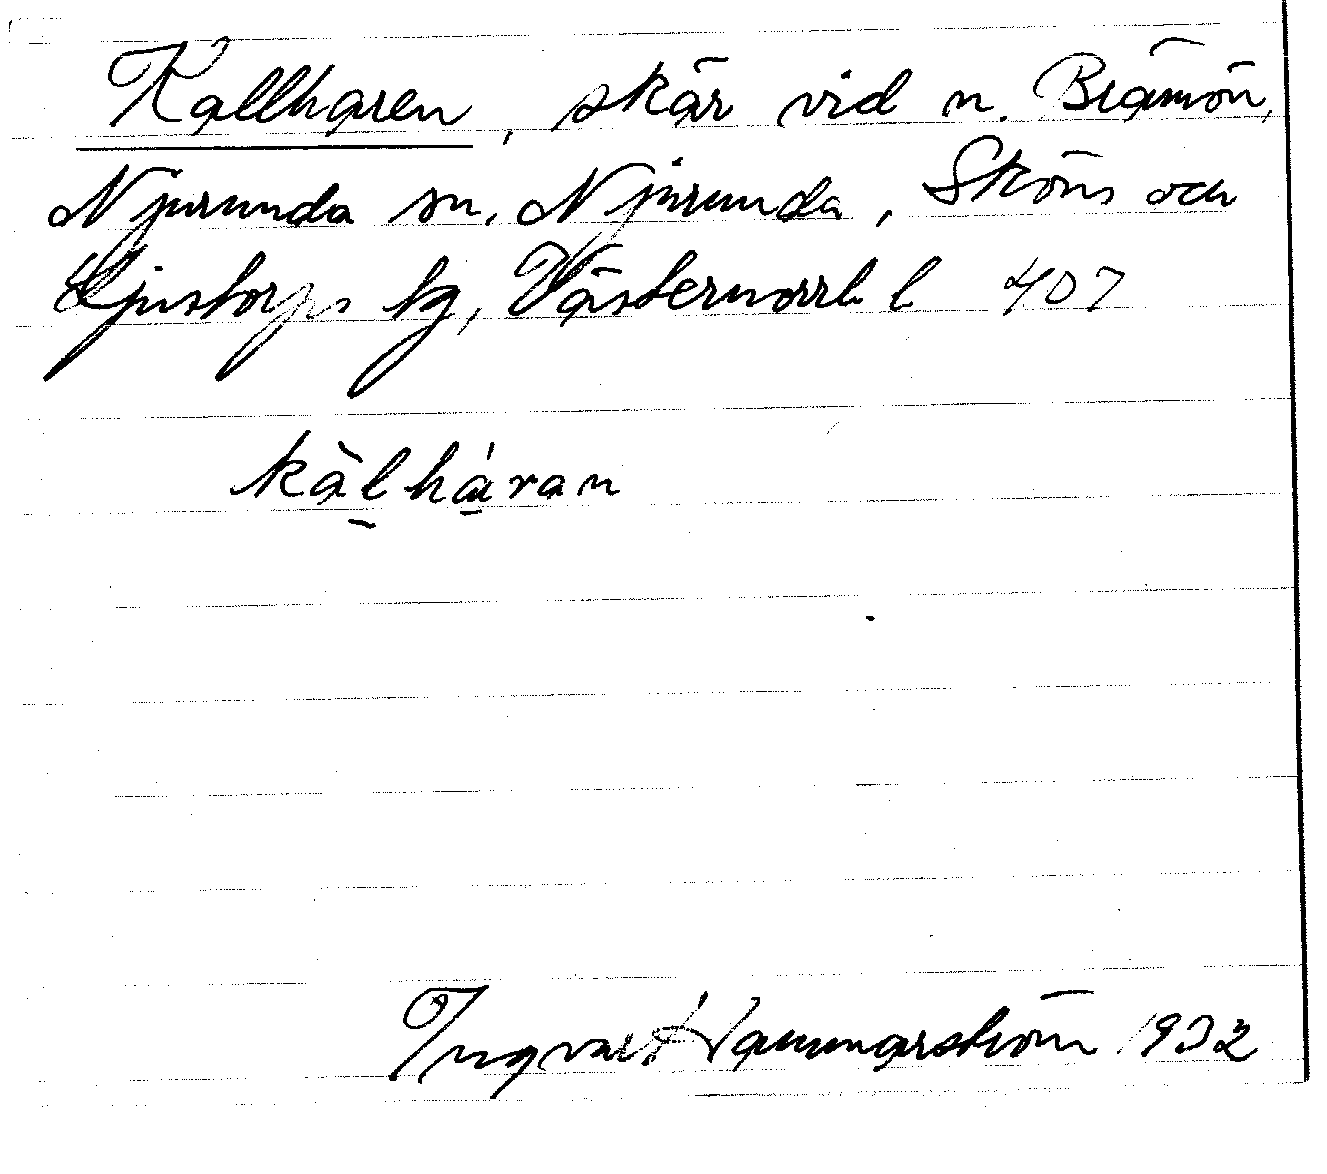 Kallharen, skär vid n. Brämön,
Njurunda sn. Njurunda, Sköns och
Ljustorps tg, Västernorrl. l 407
kàlháran
Ingvar Hammarström 1932